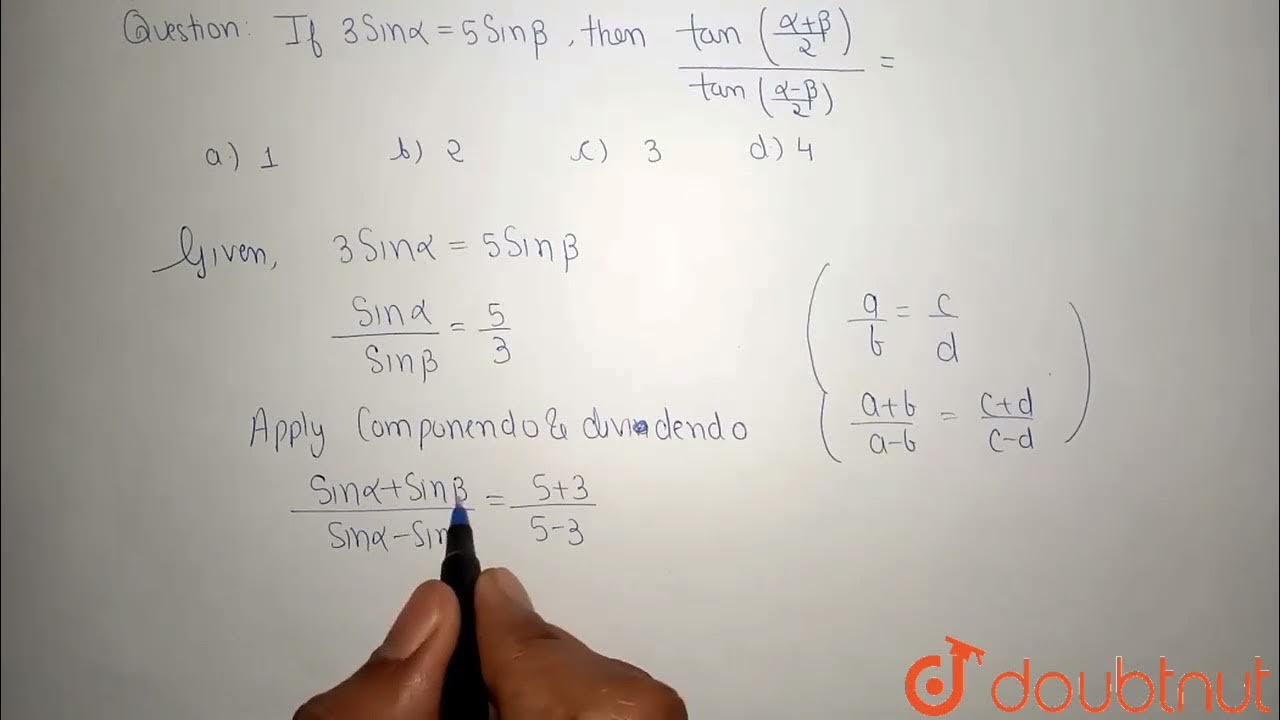 Question: If 3Sinα = 5Sinβ, then tan((α+β)/2) / tan((α-β)/2) =
a) 1 b) 2 c) 3 d) 4
Given, 3Sinα = 5Sinβ
Sinα/Sinβ = 5/3
a/b = c/d
Apply Componendo & dividendo
(a+b)/(a-b) = (c+d)/(c-d)
(Sinα+Sinβ)/(Sinα-Sin = (5+3)/(5-3)
doubtnut